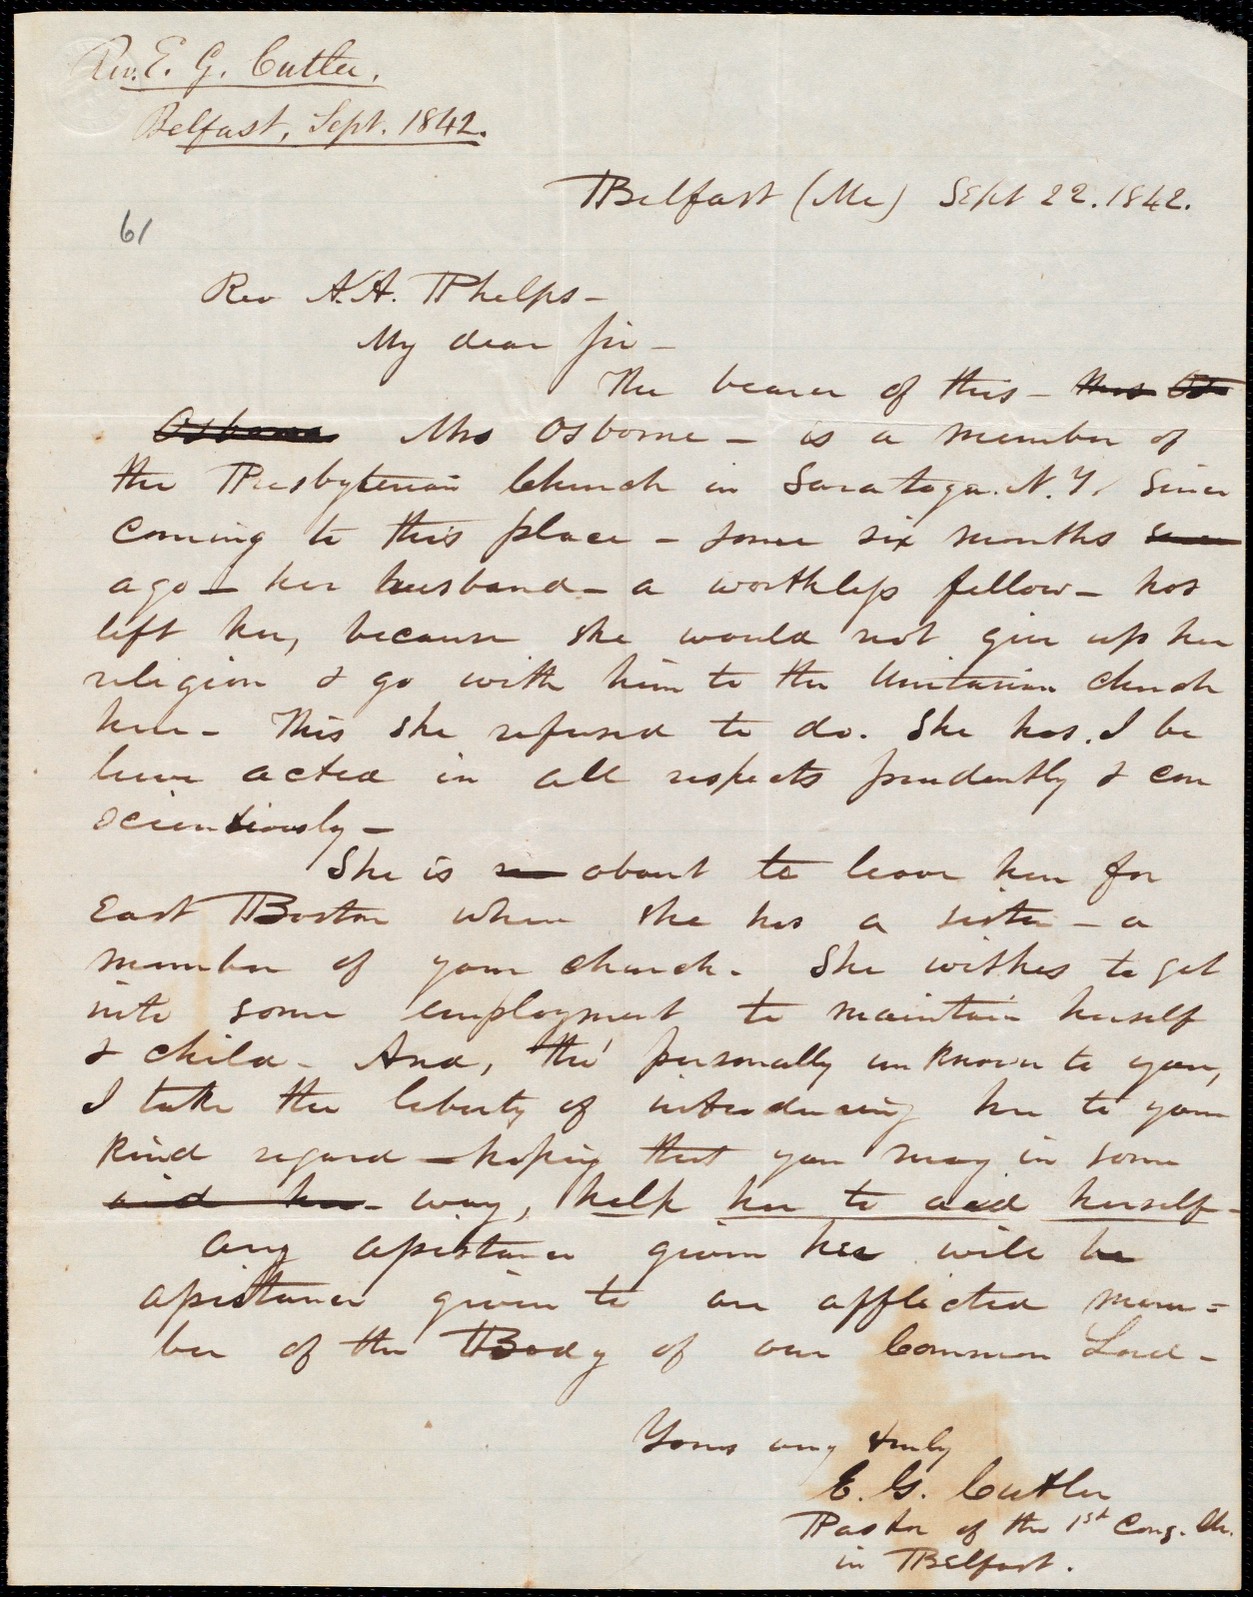 Rev. E. G. Cutler.
Belfast, Sept. 1842.
Belfast (Me) Sept 22. 1842.
61
Rev A. A. Phelps -
My dear Sir -
The bearer of this - Mrs Os
Osborne Mrs Osborne - is a member of
the Presbyterian Church in Saratoga. N. Y. Since
coming to this place - some six months since
ago - her husband - a worthless fellow - has
left her, because she would not give up her
religion & go with him to the Unitarian church
here - This she refused to do. She has, I be
lieve acted in all respects prudently & con
scientiously -
She is about to leave here for
East Boston where she has a sister - a
member of your church. She wishes to get
into some employment to maintain herself
& child - And, tho' personally unknown to you,
I take the liberty of introducing her to your
kind regard - hoping that you may in some
aid her - way, help her to aid herself -
Any assistance given her will be
assistance given to an afflicted mem=
ber of the Body of our Common Lord -
Yours very truly
E. G. Cutler
Pastor of the 1st Cong. Ch.
in Belfast.